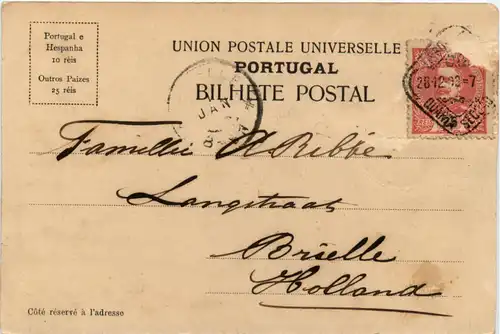 Portugal e
Hespanha
10 réis
Outros Paizes
25 réis
UNION POSTALE UNIVERSELLE
PORTUGAL
BILHETE POSTAL
JAN
Famillie A Ribbé
Langstraat
Brielle
Holland
Côté réservé à l'adresse